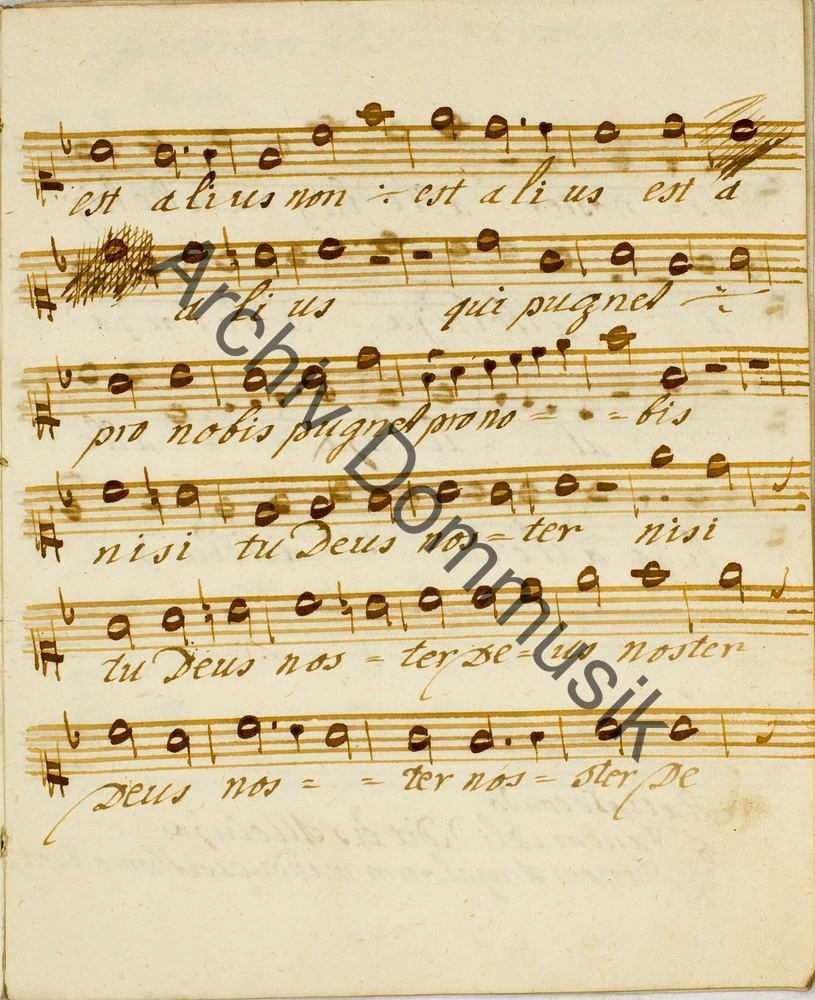 est alius non ÷ est alius est a
alius qui pugnet ÷
pro nobis pugnet pro no = = bis
nisi tu Deus nos = ter nisi
tu Deus nos = ter De = us noster
Deus nos = = ter nos = ster De
Archiv Dommusik